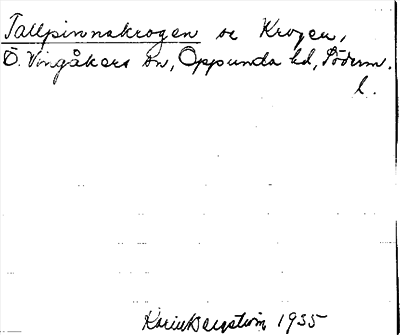 Tallpinnskrogen se Krogen,
Ö. Vingåkers sn, Oppunda hd, Söderm.
l.
Karin Bergström 1935